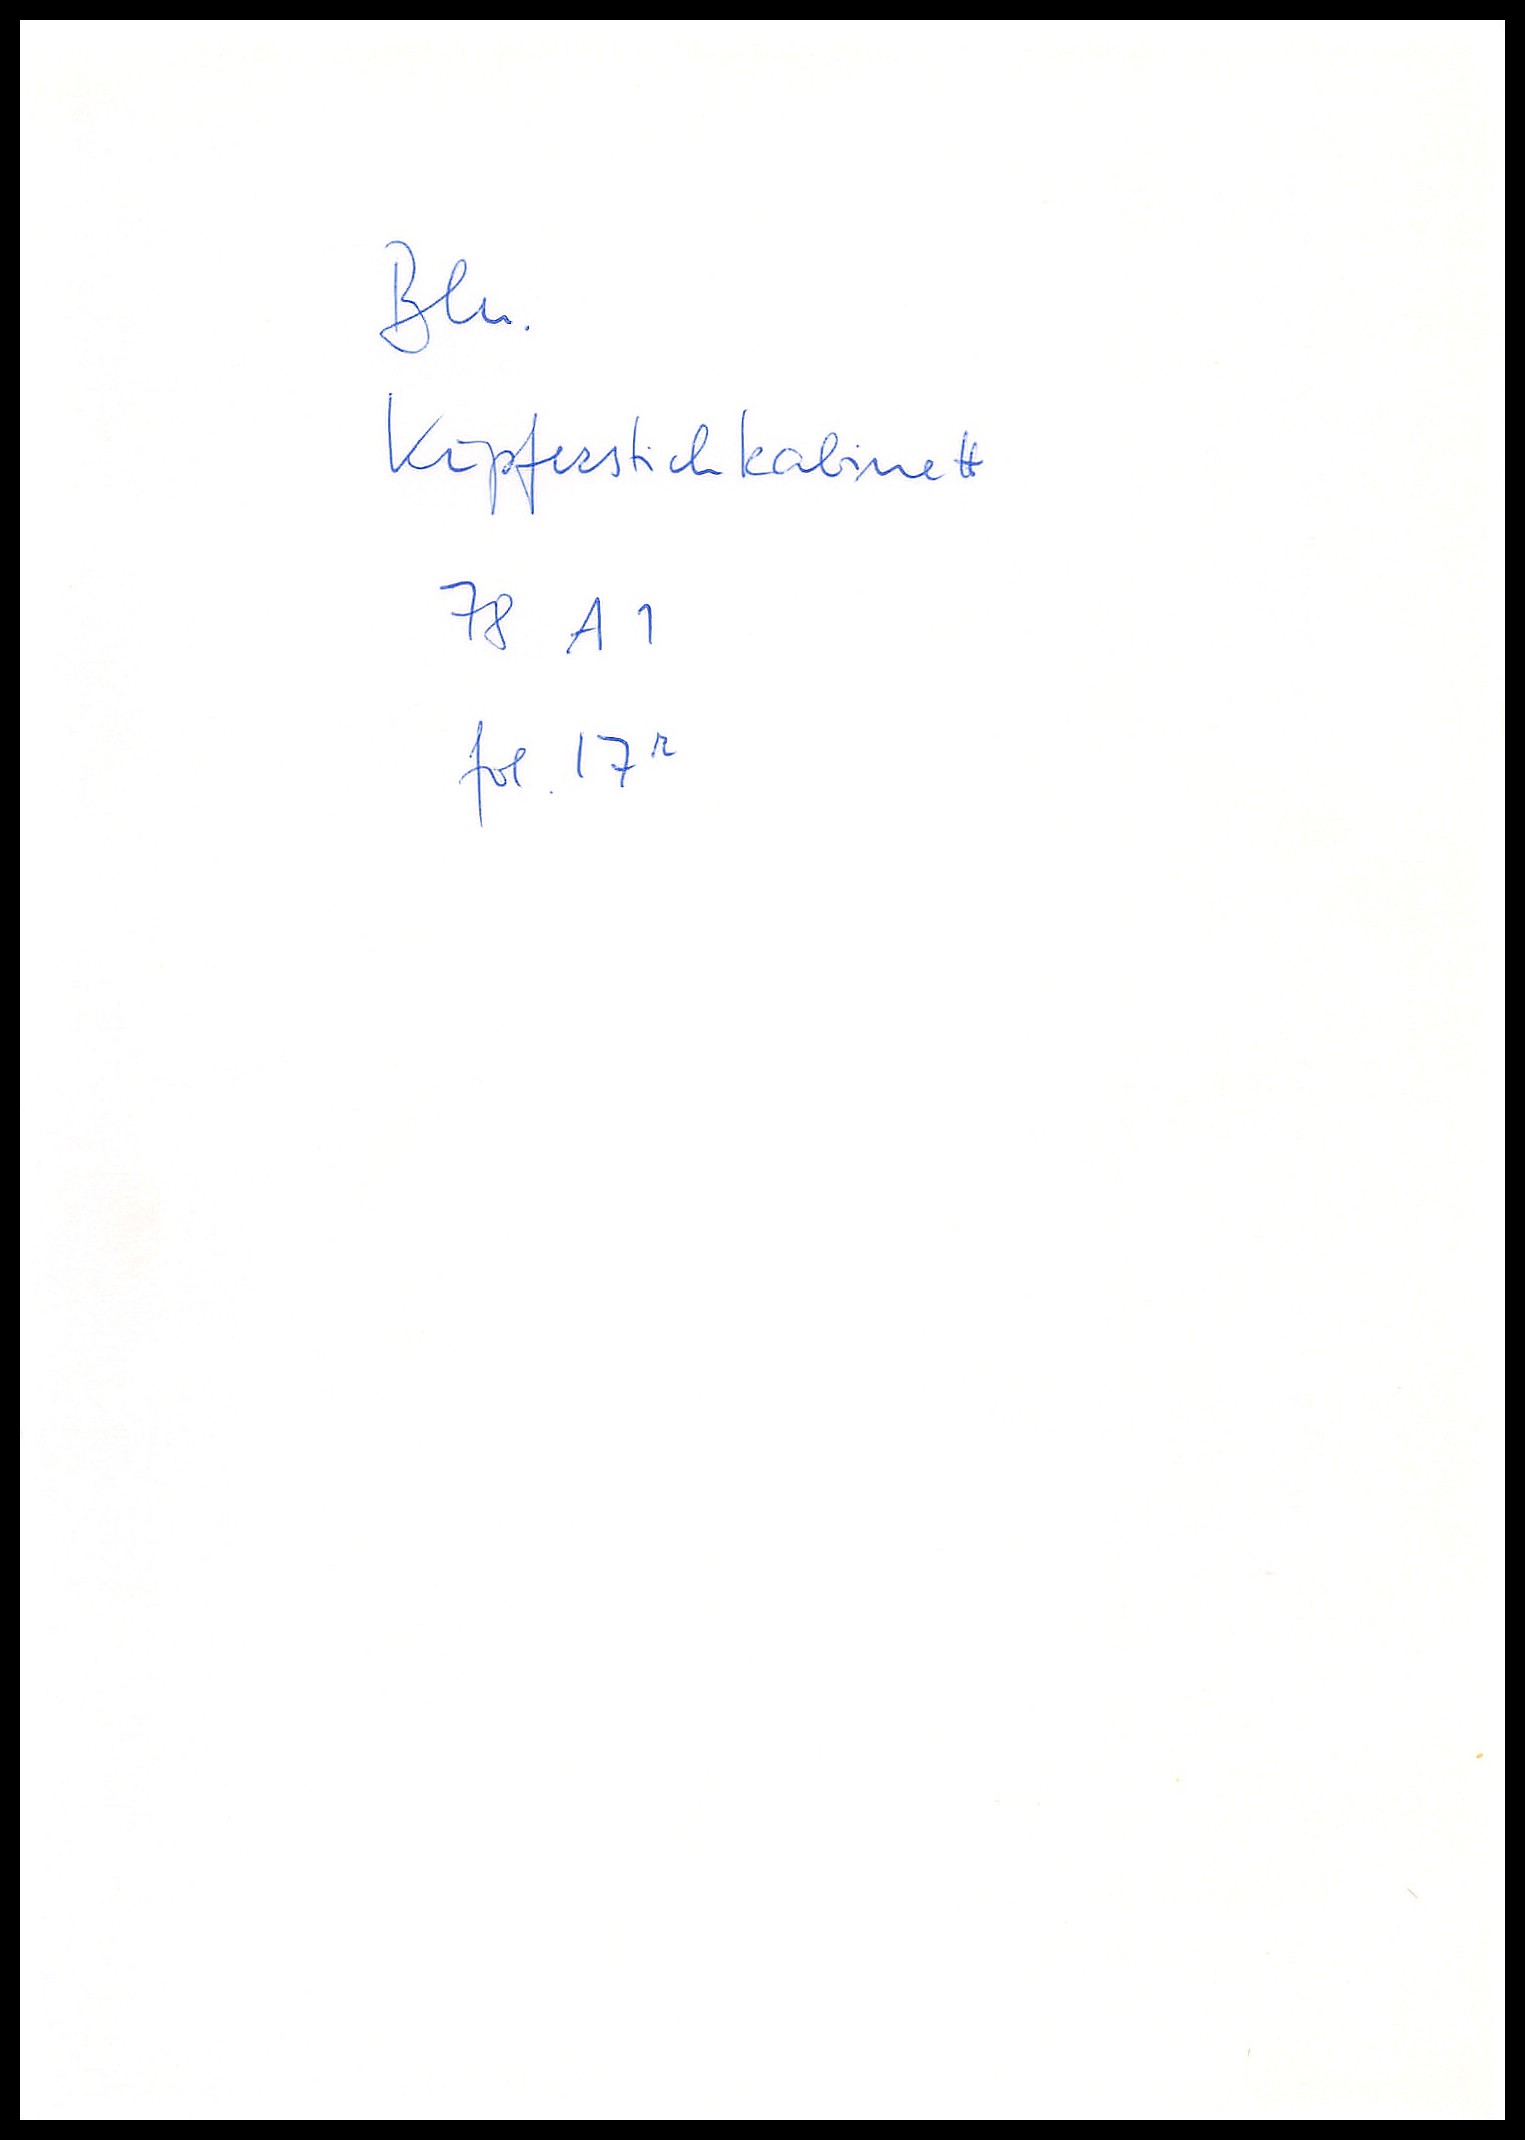 Bln.
Kupferstichkabinett
78 A 1
fol. 17r